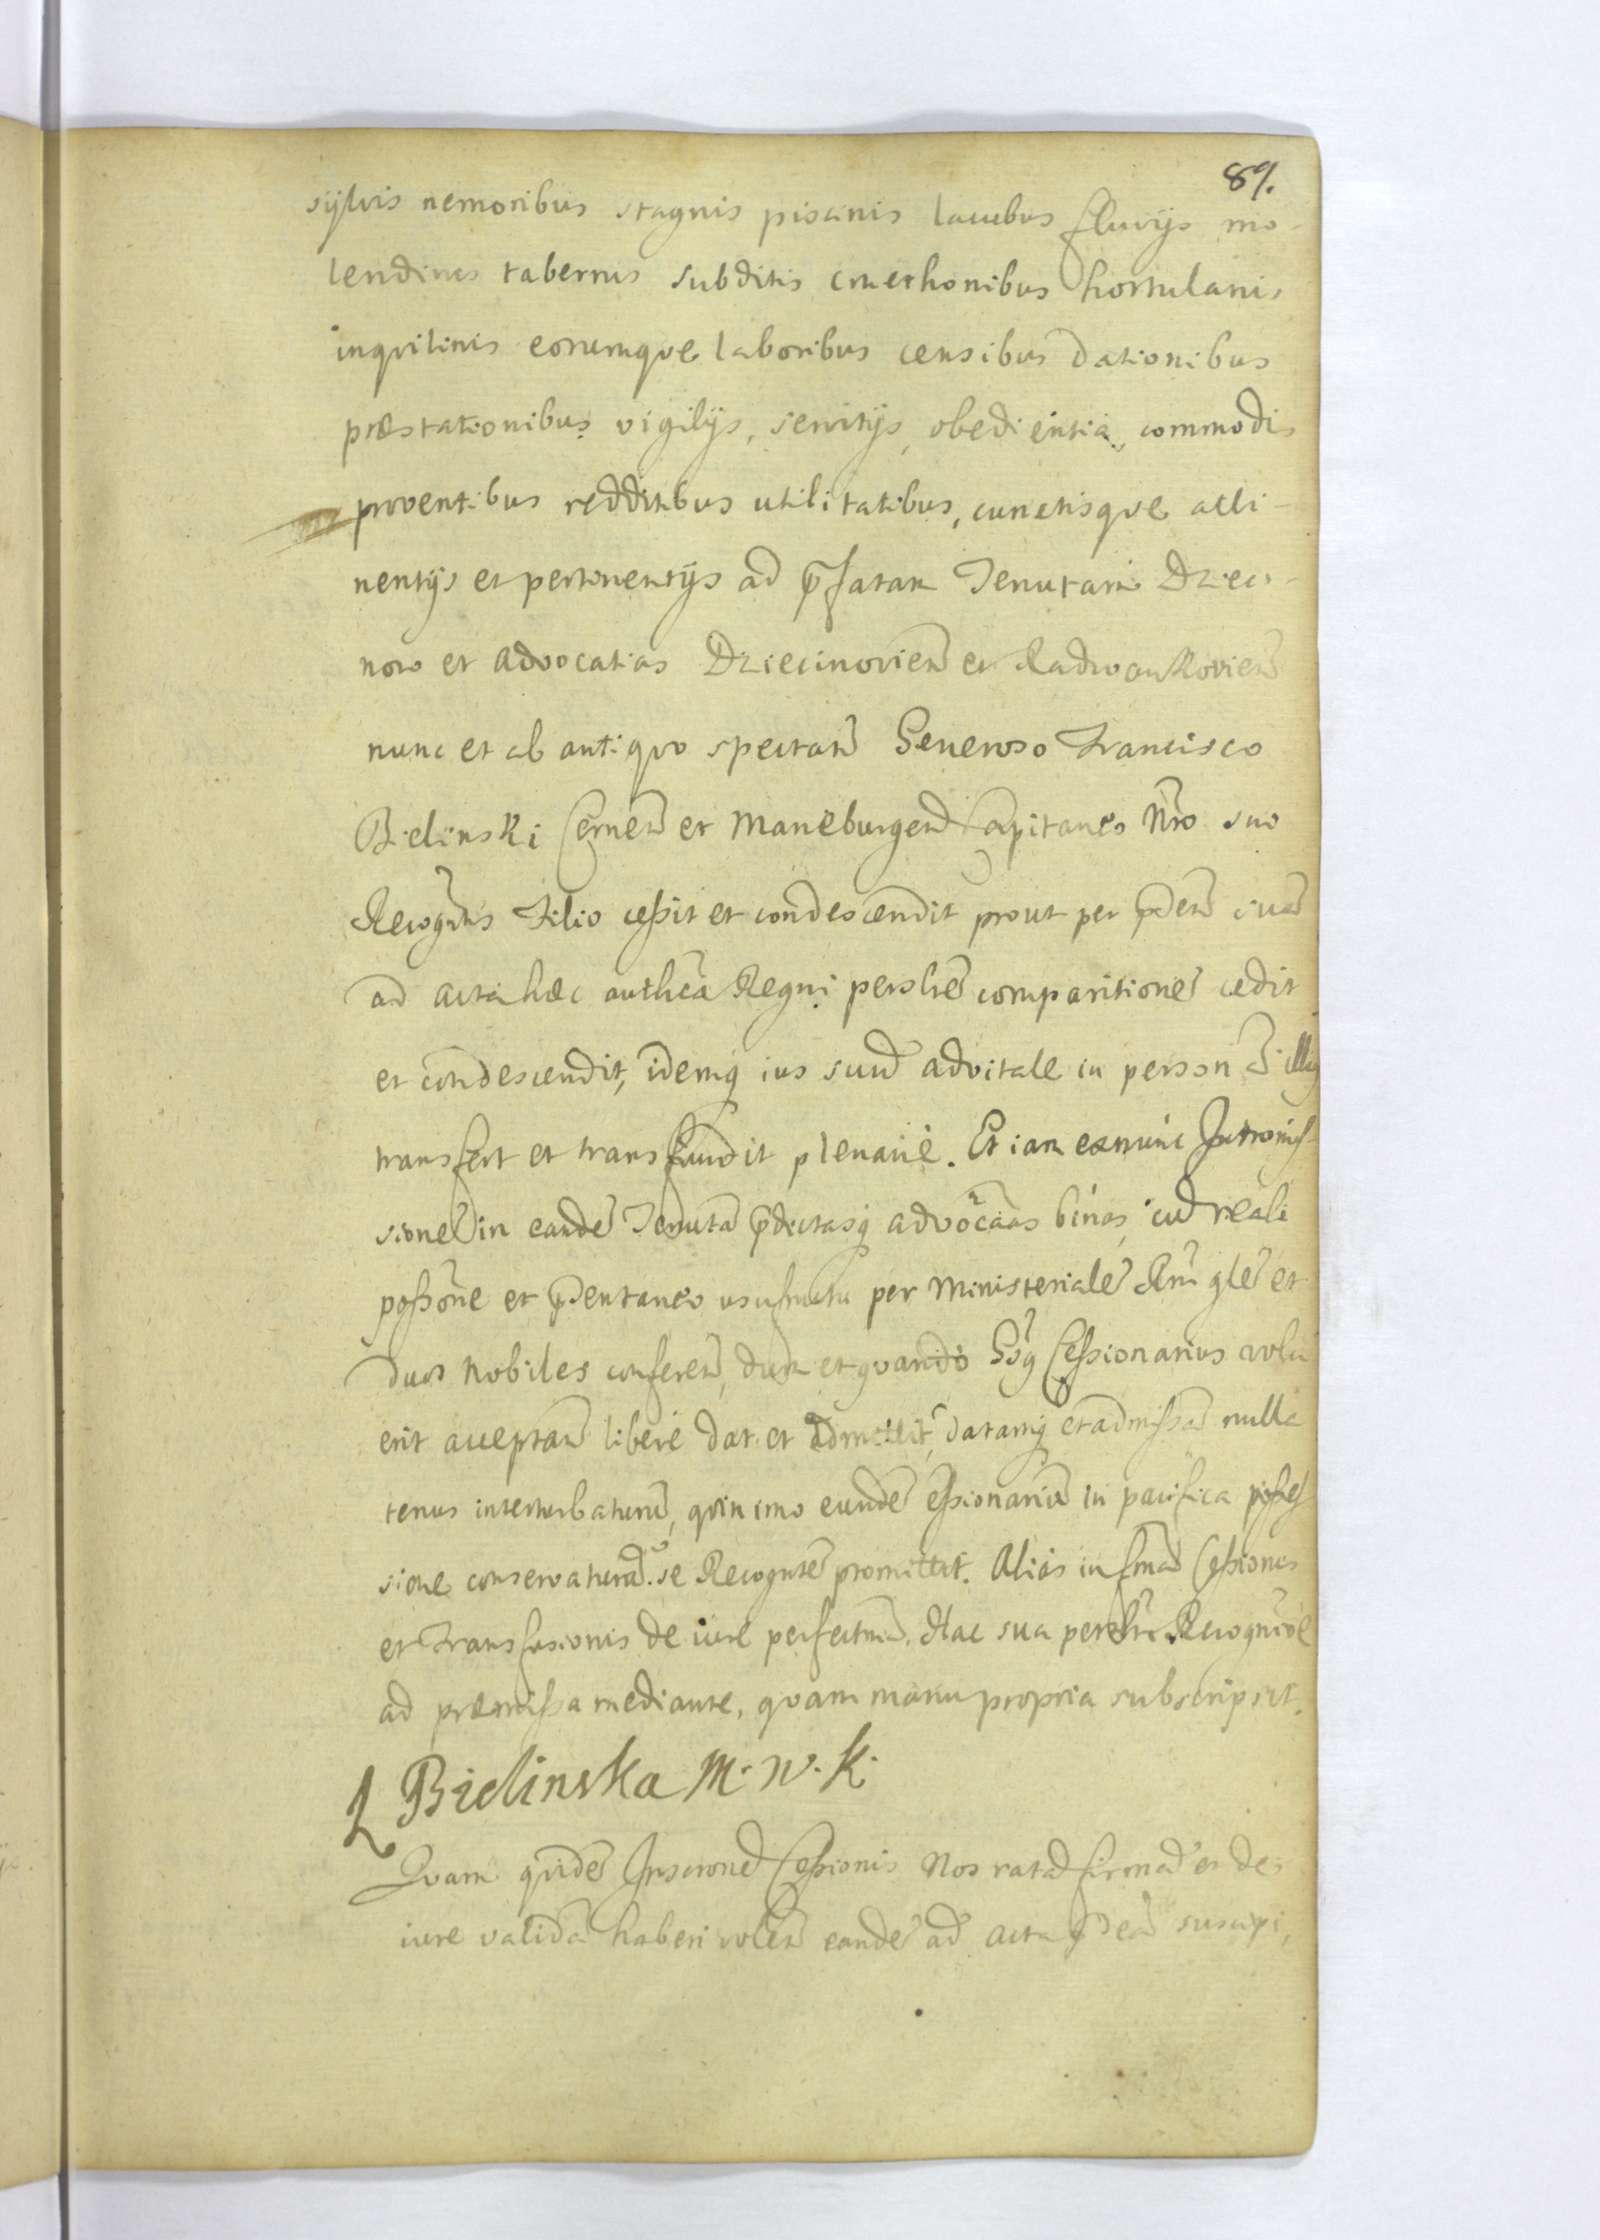 89.
sylvis nemoribus stagnis piscinis lacubus fluvijs mo-
lendinis tabernis subditis cmethonibus hortulanis
inqvilinis eorumqve laboribus censibus dationibus
præstationibus vigilijs, servitijs, obedientia, commodis
proventibus redditibus utilitatibus, cunctisqve atti-
nentijs et pertinentijs ad p̃fatam Tenutam Dzieci-
now et advocatias Dziecinovien̄ et Radwankovien̄
nunc et ab antiqvo spectan̄ Generoso Francisco
Bielinski Cernen̄ et Maneburgen̄ Capitaneo Nr̃o suo
Recogn̄tis Filio cessit et condescendit prout per p̃den̄ suã
ad acta hæc auth̃ca Regni persl̃em comparitionē cedit
et condescendit, idemq ius suū advitale in personã illiq
transfert et transfundit plenarié. Et iam exnunc Intromis-
sionē in eandē Tenutã p̃dictasq advõcãas binas, cū reali
possõne et p̃dentaneo usufructu per Ministerialē Rn̄i gl̃e et
duos Nobiles conferen̄, dum et qvando Gsq Cessionarius volu
erit acceptan̄ liberé dat et admittit, datamq et admissã nulla
tenus interturbaturū, qvin imo eundē Cessionariū in pacifica posses
sione conservaturã se Recogn̄tē promittit. Aliás in formã Cessionis
et Transfusionis de iure perfectiorē. Hac sua persl̃i Recognõe
ad præmissa mediante, qvam manu propria subscripsit.
L Bielinska m. w. k.
Qvam qvidē Inscr̃onē Cessionis Nos ratã firmã et de
iure validã haberi volen̄ eandē ad acta p̃den̄ suscipi,